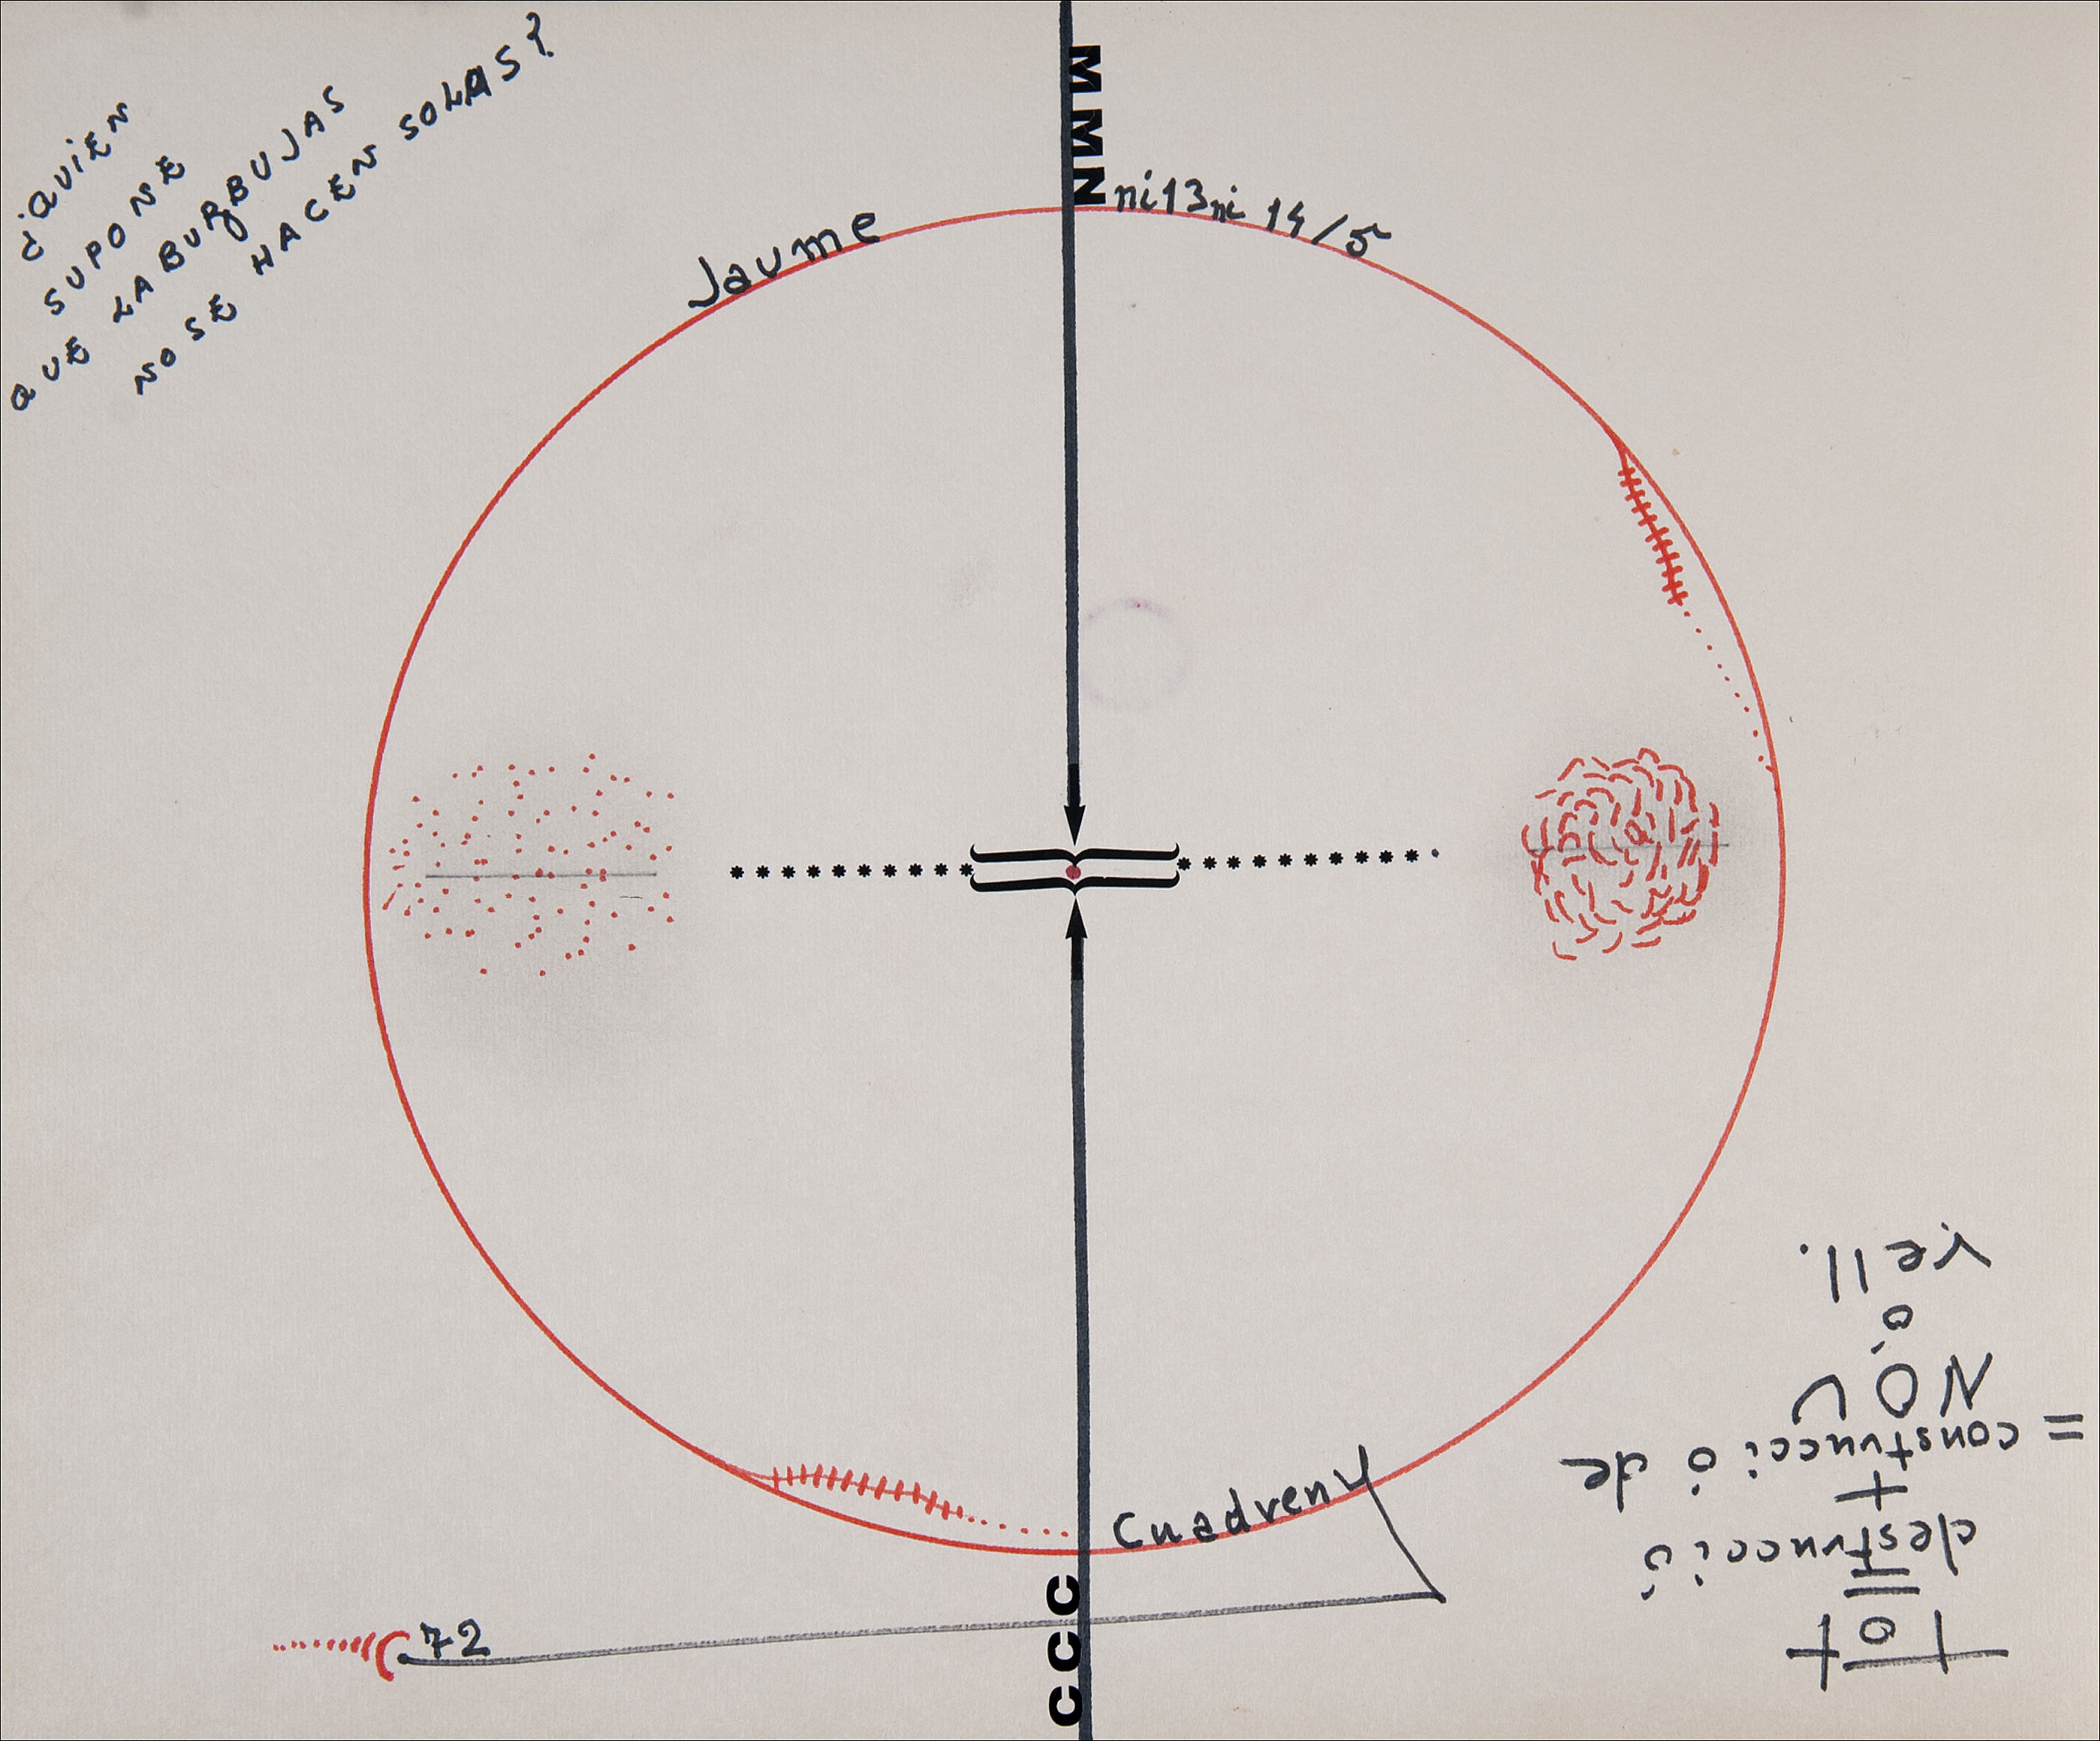 ¿QUIEN
SUPONE
QUE LA BURBUJAS
NO SE HACEN SOLAS?
MMN
Jaume
ni 13 ni 14/5
Cuadreny
CCC
72
Tot
=
destrucció
+
construcció de
=
NOU
o
vell.